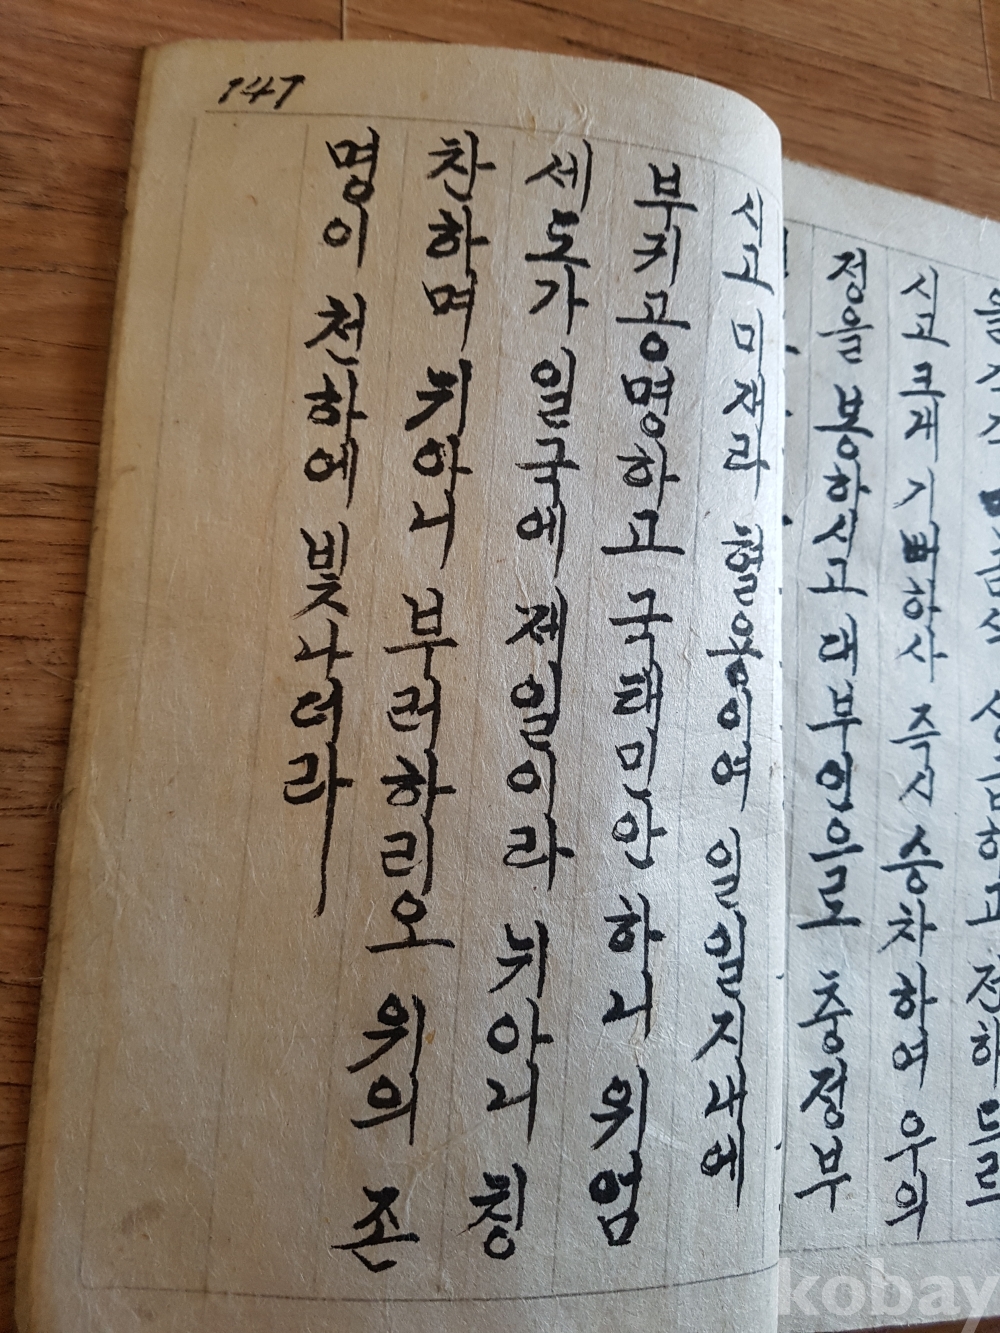 147
시고 크게 기뻐하사 즉시 승차하여 우의
정을 봉하시고 대부인으로 충정부
시고 미재라 일일지내에
부귀공명하고 국태민안 하니 위엄
세도가 일국에 제일이라 뉘아니 칭
찬하며 뉘아니 부러하리오 위의 존
명이 천하에 빛나더라
kobay